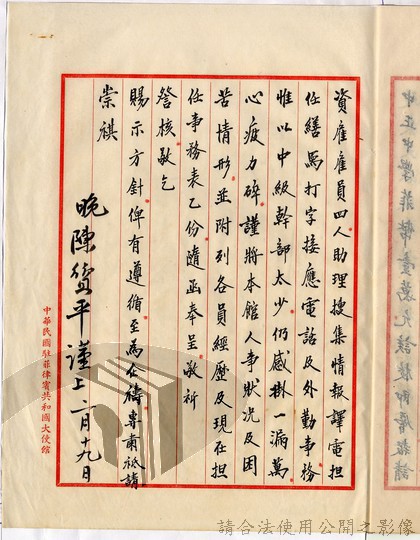 資雇雇員四人助理搜集情報譯電担
任繕寫打字接應電話及外勤事務
惟以中級幹部太少仍感掛一漏萬
心疲力碎謹將本館人事狀況及困
苦情形並附列各員經歷及現在担
任事務表乙份隨函奉呈敬祈
詧核敬乞
賜示方針俾有遵循至為企禱專肅祗請
崇祺
晚陳質平謹上二月十九日
中華民國駐菲律賓共和國大使館
請合法使用公開之影像